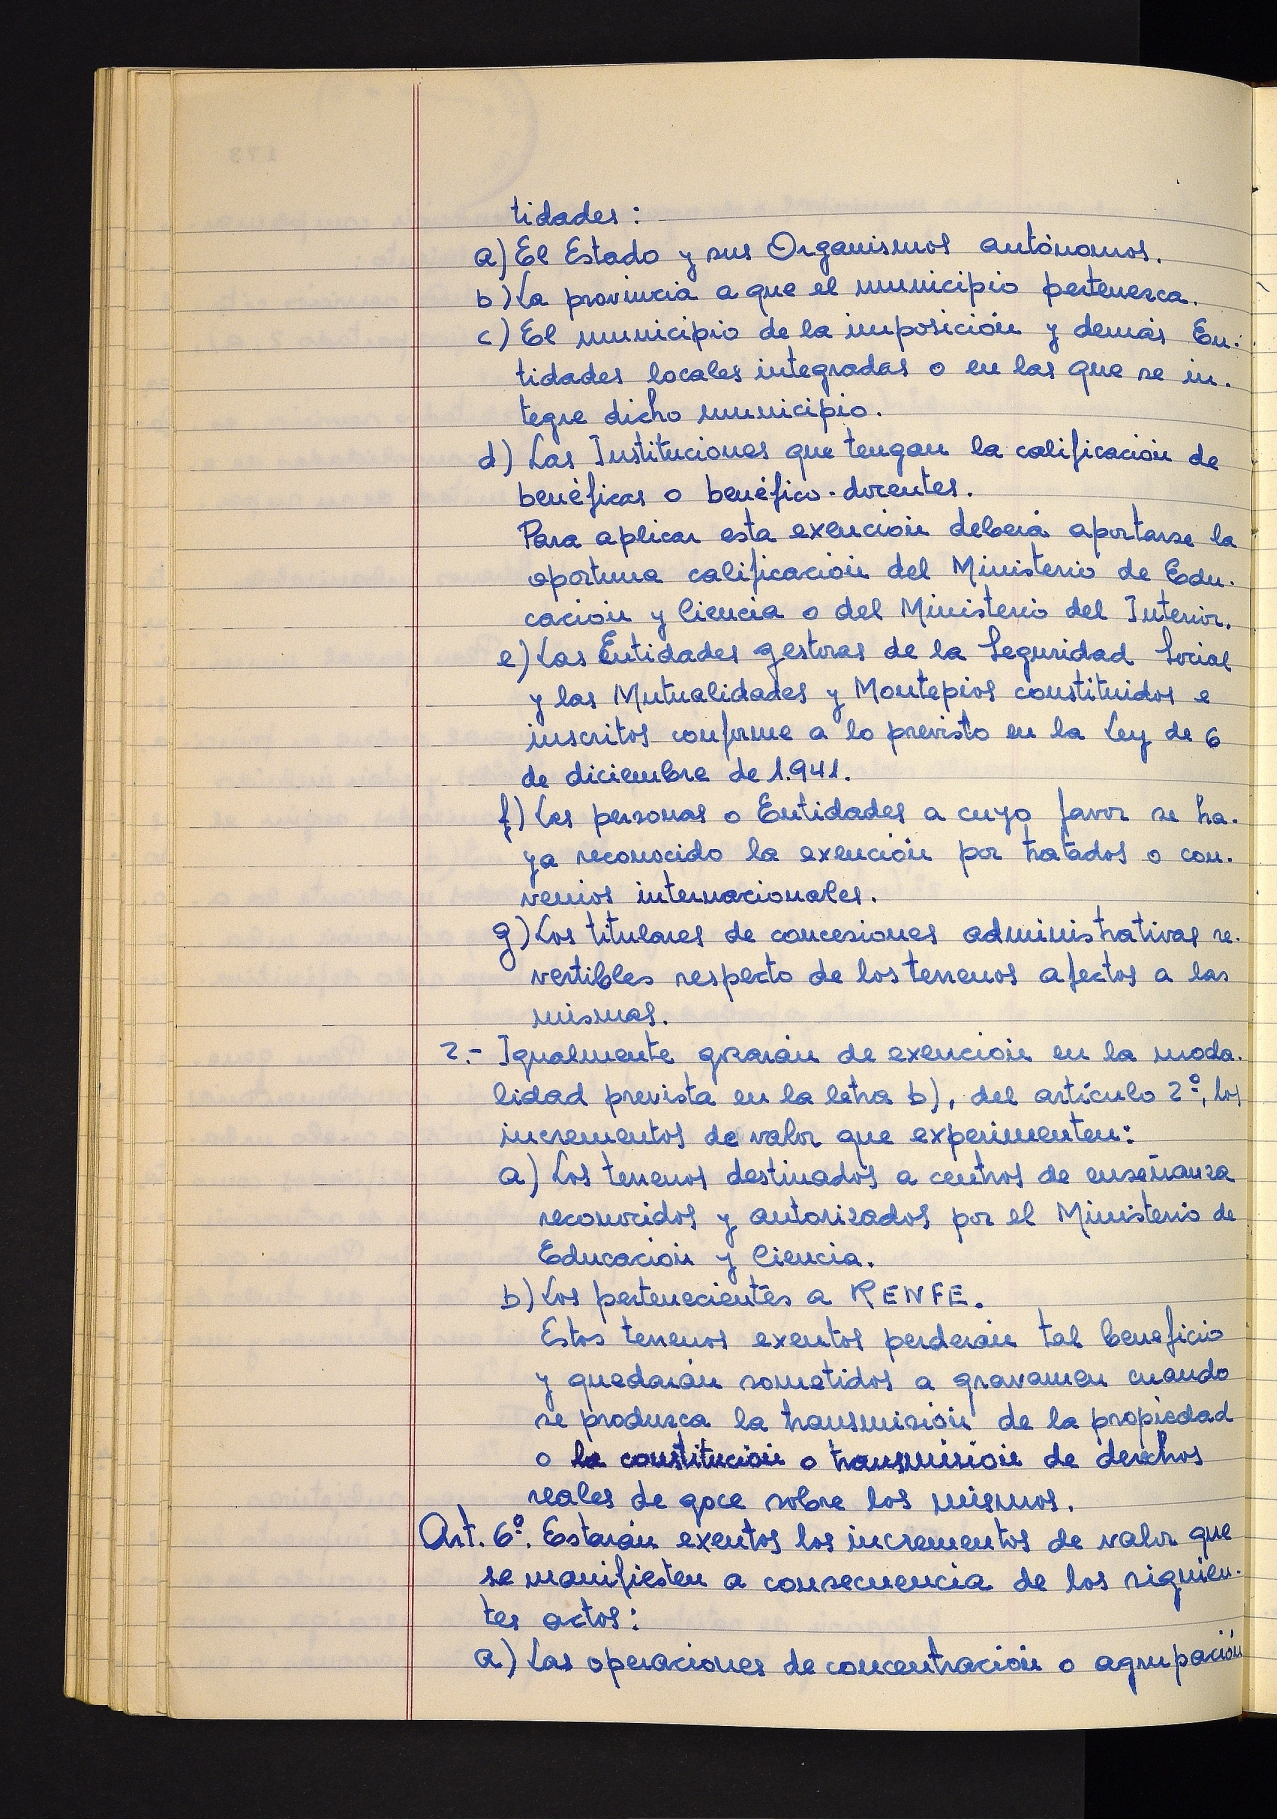 tidades:
a) El Estado y sus Organismos autónomos.
b) La provincia a que el municipio pertenezca.
c) El municipio de la imposición y demás En-
tidades locales integradas o en las que se in-
tegre dicho municipio.
d) Las Instituciones que tengan la calificación de
benéficas o benéfico-docentes.
Para aplicar esta exención deberá aportarse la
oportuna calificación del Ministerio de Edu-
cación y Ciencia o del Ministerio del Interior.
e) Las Entidades gestoras de la Seguridad Social
y las Mutualidades y Montepios constituidos e
inscritos conforme a lo previsto en la Ley de 6
de diciembre de 1.941.
f) Las personas o Entidades a cuyo favor se ha-
ya reconocido la exención por tratados o con-
venios internacionales.
g) Los titulares de concesiones administrativas re-
vertibles respecto de los terrenos afectos a las
mismas.
2.- Igualmente gozarán de exención en la moda-
lidad prevista en la letra b), del artículo 2º, los
incrementos de valor que experimenten:
a) Los terrenos destinados a centros de enseñanza
reconocidos y autorizados por el Ministerio de
Educación y Ciencia.
b) Los pertenecientes a RENFE.
Estos terrenos exentos perderán tal beneficio
y quedarán sometidos a gravamen cuando
se produzca la transmisión de la propiedad
o la constitución o transmisión de derechos
reales de goce sobre los mismos.
Art. 6º. Estarán exentos los incrementos de valor que
se manifiesten a consecuencia de los siguien-
tes actos:
a) Las operaciones de concentración o agrupación